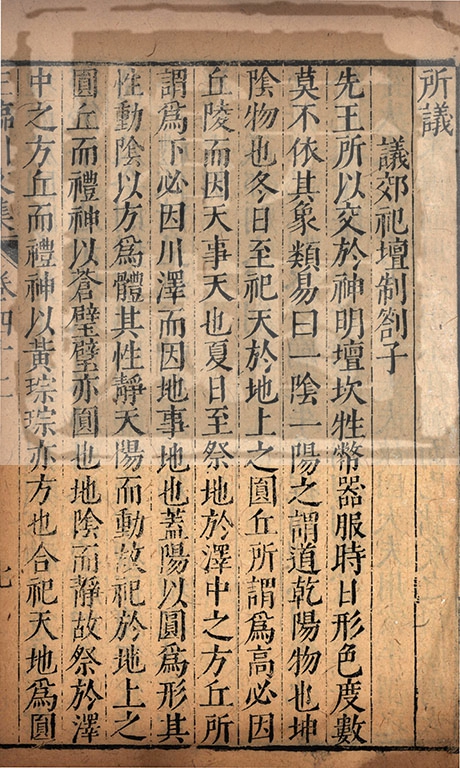 所議
議郊祀壇制劄子
先王所以交於神明壇坎牲幣器服時日形色度數
莫不依其象類易曰一陰一陽之謂道乾陽物也坤
陰物也冬日至祀天於地上之圓丘所謂爲高必因
丘陵而因天事天也夏日至祭地於澤中之方丘所
謂爲下必因川澤而因地事地也蓋陽以圓爲形其
性動陰以方爲體其性靜天陽而動故祀於地上之
圓丘而禮神以蒼璧璧亦圓也地陰而靜故祭於澤
中之方丘而禮神以黃琮琮亦方也合祀天地爲圓
王臨川文集 卷四十二